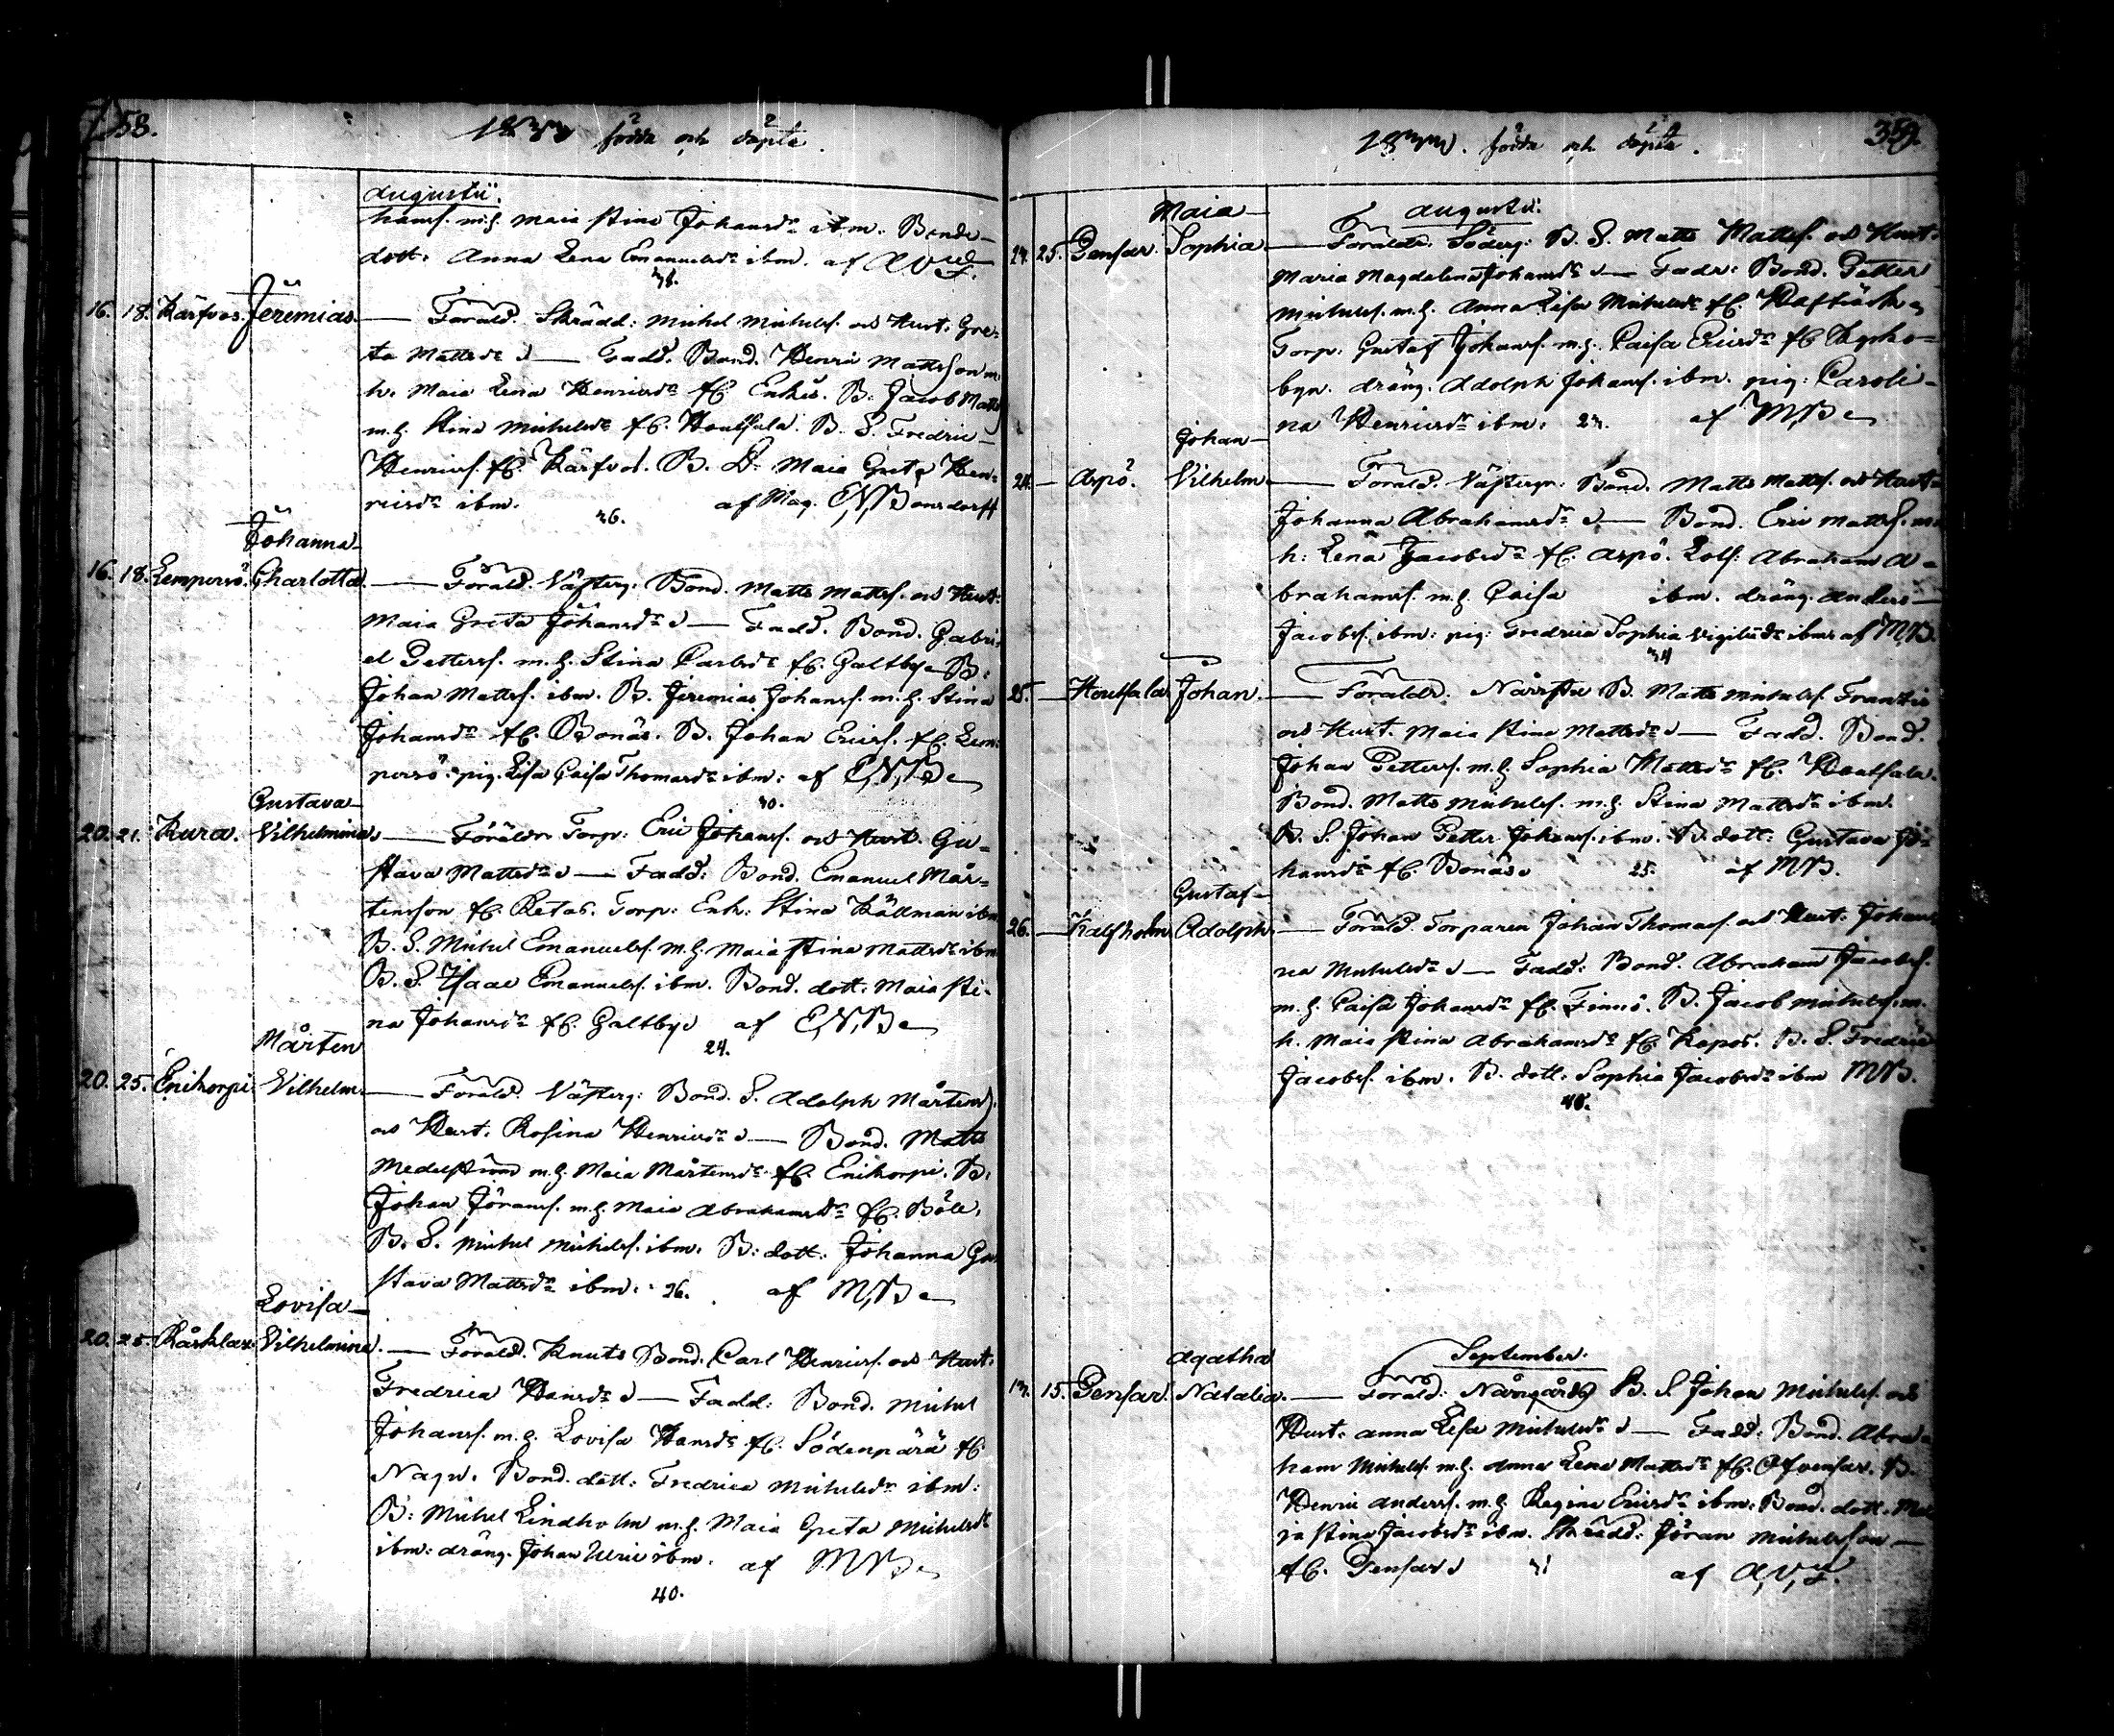 358.
1833 födde och döpte.
Augustii.
hanss. m.h. Maia Stina Johansdr ibm. Bonde-
dott. Anna Lena Emanuelsdr ibm. af
38.
16. 18. Kärfvos. Jeremias. — Föräld. Skrädd: Michel Michelss. och Hust. Gre-
ta Mattsdr — Fadd. Bond. Henric Mattsson m.
h. Maia Lena Henricsdr fr. Enkis. B. Jacob Matts
m.h. Stina Michelsdr fr. Houtsala. B. S. Fredric
Henricss. fr. Kärfvos. B. Dr Maia Greta Hen-
ricsdr ibm. af Mag. E,V,Bonsdorff
36.
Johanna-
16. 18. Lempersö. Charlotta. — Föräld. Västerg: Bond. Matts Mattss. och Hust.
Maia Greta Johansdr — Fadd. Bond. Gabri-
el Petterss. m.h. Stina Carlsdr fr. Galtby. B.
Johan Mattss. ibm. B. Jeremias Johanss. m.h. Stina
Johansdr fr. Bonäs. B. Johan Ericss. fr. Lem-
persö. pig. Lisa Caisa Thomasdr ibm: af E,V,B
30.
Gustava-
20. 21. Kura. Vilhelmina. — Föräldr. Torp: Eric Johanss. och Hust. Gu-
stava Mattsdr — Fadd: Bond. Emanuel Mår-
tensson fr. Retas. Torp: Enk: Stina Källman ibm
B. S. Michel Emanuelss. m.h. Maia Stina Mattsdr ibm
B. S. Isaac Emanuelss. ibm. Bond. dott. Maia Sti-
na Johansdr fr. Galtby af E,V,B
24.
Mårten
20. 25. Enikorpi Vilhelm. — Föräld. Västerg: Bond. S. Adolph Mårtenss.
och Hust. Rosina Henricsdr — Bond. Matts
Medelström m.h. Maia Mårtensdr fr. Enikorpi. B.
Johan Jöranss. m.h. Maia Abrahamsdr fr. Böle.
B. S. Michel Michelss. ibm. B: dott: Johanna Gu
stava Mattsdr ibm. 26. af M,B
Lovisa-
20. 25. Kårklax. Vilhelmina. — Föräld. Knuts Bond. Carl Henricss. och Hust.
Fredrica Hansdr — Fadd: Bond. Michel
Johanss. m.h. Lovisa Hansdr fr. Södenpärä fr.
Nagu. Bond. dott: Fredrica Michelsdr ibm:
B: Michel Lindholm m.h. Maia Greta Michelsdr
ibm: dräng. Johan Ulric ibm. af M,B
40.
1833. födde och döpte.
359.
Augusti.
Maia-
24. 25. Pensar. Sophia — Föräldr. Söderg: B. S. Matts Mattss. och Hust.
Maria Magdalena Johansdr — Fadr: Bond. Petter
Michelss. m.h. Anna Lisa Michelsdr fr.
Torp: Gustaf Johanss. m.h. Caisa Ericsdr fr. Kyrko-
byn. dräng. Adolph Johanss. ibm. pig: Caroli-
na Henricsdr ibm. 23. af M,B
Johan-
24. — Aspö. Vilhelm. — Föräld. Västergr: Bond. Matts Mattss. och Hust
Johanna Abrahamsdr — Bond. Eric Mattss. m.
h: Lena Jacobsdr fr. Aspö. Lots: Abraham A-
brahamss. m.h. Caisa ibm. dräng. Anders
Jacobss. ibm: pig: Fredrica Sophia ibm: af M,B.
34
25. — Houtsala. Johan. — Föräldr. B. Matts Michelss. Frantis
och Hust. Maia Stina Mattsdr — Fadd. Bond.
Johan Petterss. m.h. Sophia Mattsdr fr. Houtsala.
Bond. Matts Michelss. m.h. Stina Mattsdr ibm.
B. S. Johan Petter Johanss. ibm. B. dott: Gustava Jo-
hansdr fr. Bonäs. 25. af M,B.
Gustaf-
26. — Kalfholm. Adolph. — Föräld. Torparen Johan Thomass. och Hust. Johan
na Michelsdr — Fadd: Bond. Abraham Jacobss.
m.h. Caisa Johansdr fr. Finnö. B. Jacob Michelss. m.
h. Maia Stina Abrahamsdr fr. Kopos. B. S. Fredric
Jacobss. ibm. B. dott: Sophia Jacobsdr ibm M,B.
40.
September.
Agatha
13. 15. Pensar. Natalia. — Föräld: Norrgårds B. S. Johan Michelss. och
Hust. Anna Lisa Michelsdr — Fadd: Bond. Abra
ham Michelss. m.h. Anna Lena Mattsdr fr. Ofvensar. B.
Henric Anderss. m.h. Regina Ericsdr ibm: Bond. dott. Ma
ja Stina Jacobsdr ibm. Skrädd: Jöran Michelsson
fr. Pensar 31 af